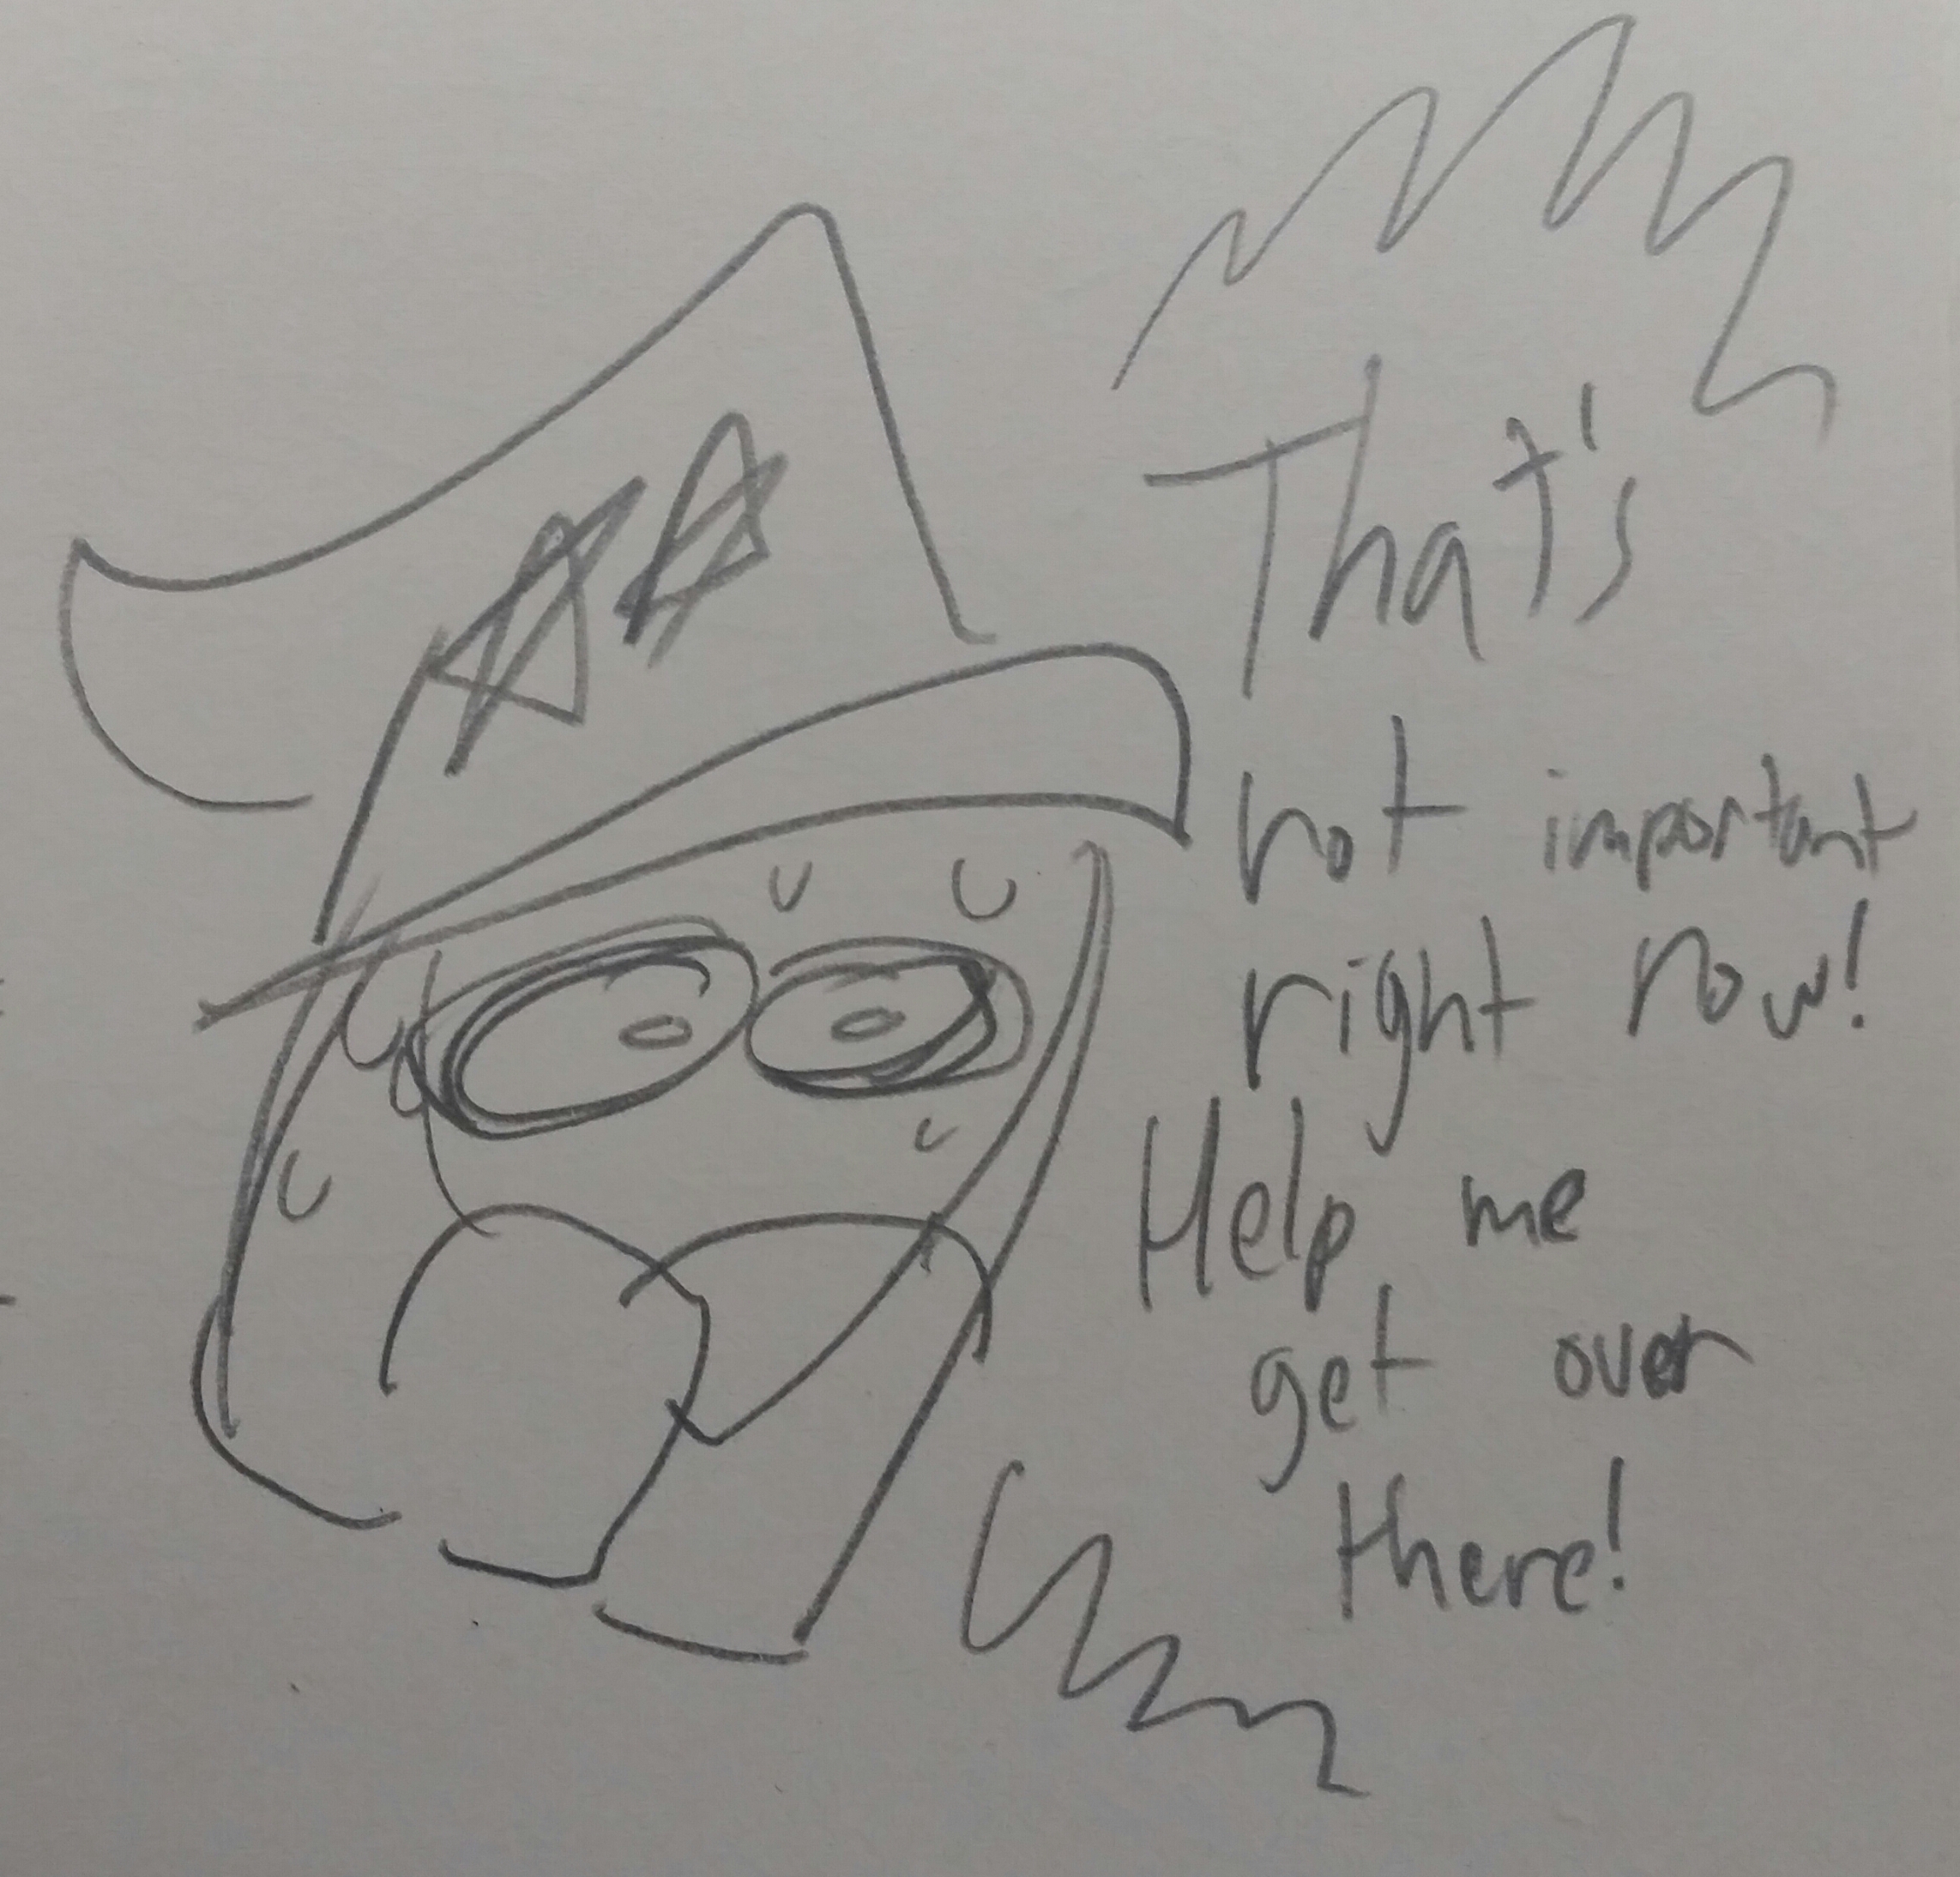 That's
not important
right now!
Help me
get over
there!